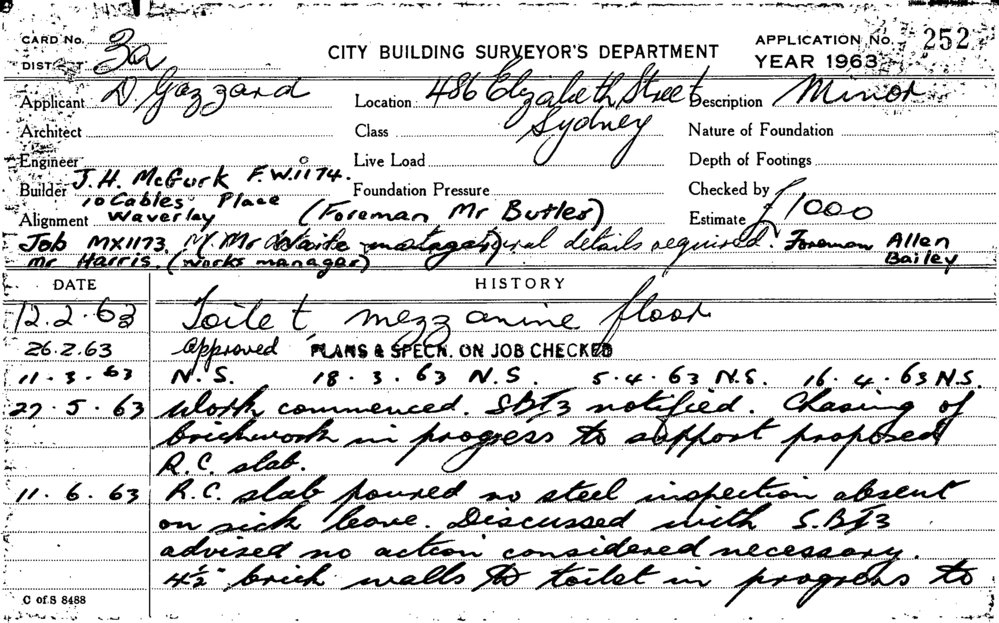 CARD No. 3a
CITY BUILDING SURVEYOR'S DEPARTMENT
APPLICATION No. 252
DISTRICT
YEAR 1963
Applicant D. Gazzard
Location 486 Elizabeth Street
Sydney
Description Minor
Architect
Class
Nature of Foundation
Engineer
Live Load
Depth of Footings
Builder J. H. McGurk F.W.1174.
Foundation Pressure
Checked by
10 Cables Place
Alignment Waverley (Foreman Mr Butler)
Estimate £1000
Job MX1173. Mr Waite details required. Foreman Allen
Mr Harris. (works manager) Bailey
DATE HISTORY
12.2.63 Toilet mezzanine floor
26.2.63 Approved PLANS & SPECN. ON JOB CHECKED
11.3.63 N.S. 18.3.63 N.S. 5.4.63 N.S. 16.4.63 N.S.
27.5.63 Work commenced. SBI3 notified. Chasing of
brickwork in progress to support proposed
R.C. slab.
11.6.63 R.C. slab poured no steel inspection absent
on sick leave. Discussed with S.BI3
advised no action considered necessary.
4½" brick walls to toilet in progress to
C of S 8488